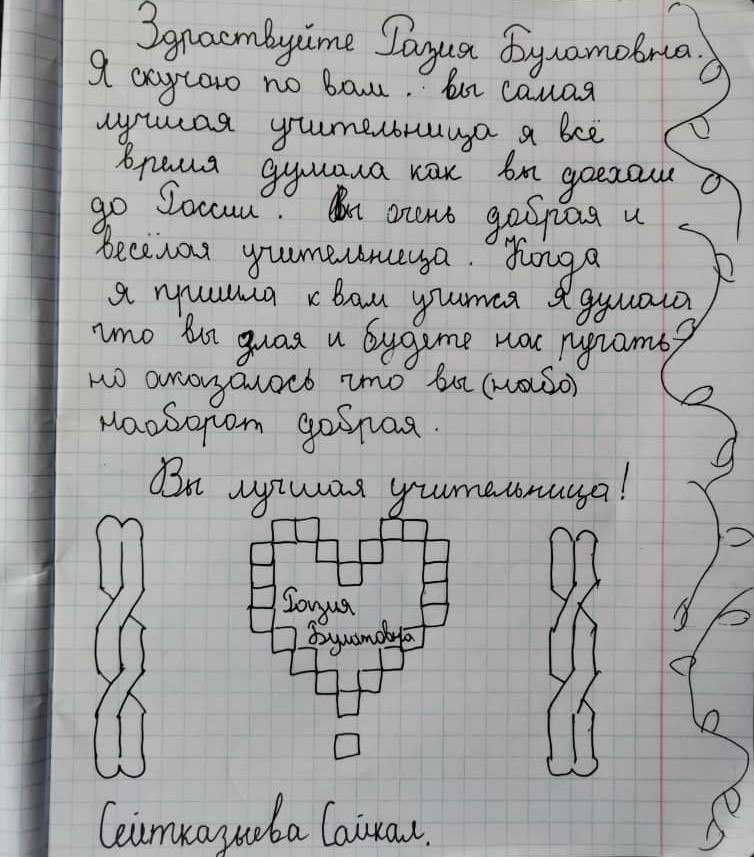 Здраствуйте Газия Булатовна.
Я скучаю по вам. вы самая
лучшая учительница я всё
время думала как вы доехали
до России. Вы очень добрая и
весёлая учительница. Когда
я пришла к вам учится я думала
что вы злая и будете нас пугать
но оказалось что вы (наоо)
наоборот добрая.
Вы лучшая учительница!
Газия
Булатовна
Сейтказыева Сайкал.